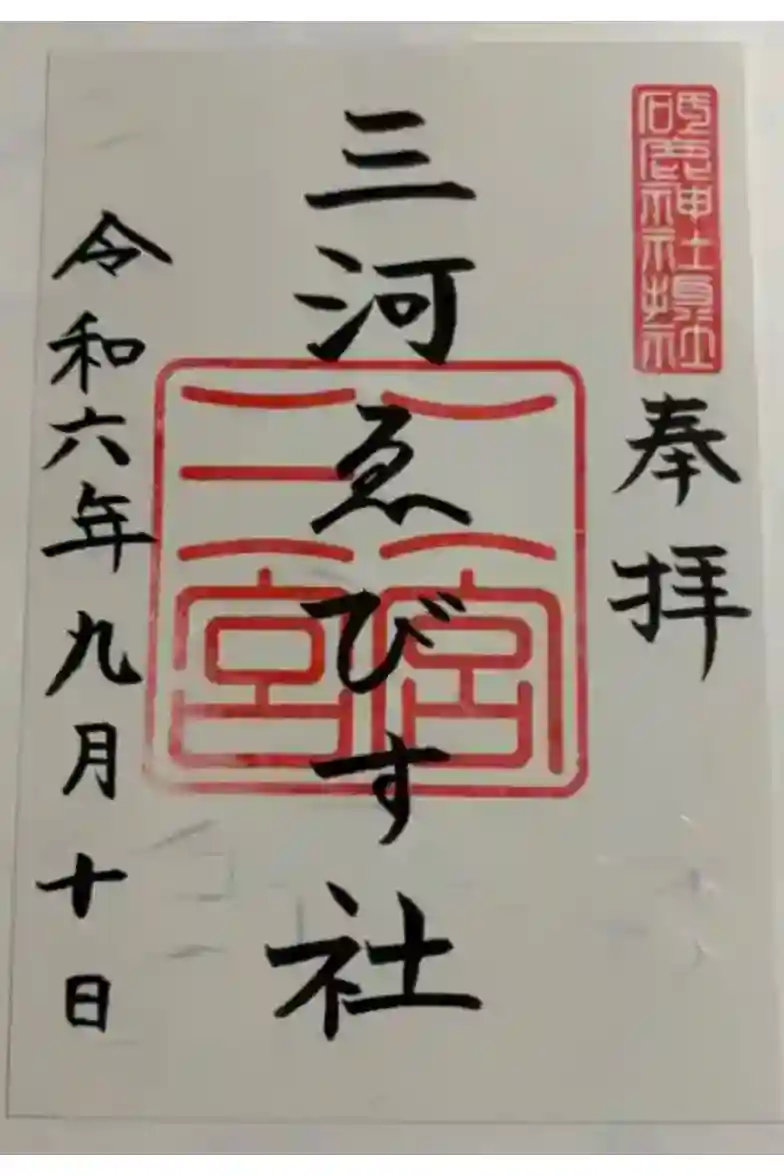 砥鹿神社
奉拝
三河ゑびす社
二宮
三宮
令和六年九月十日